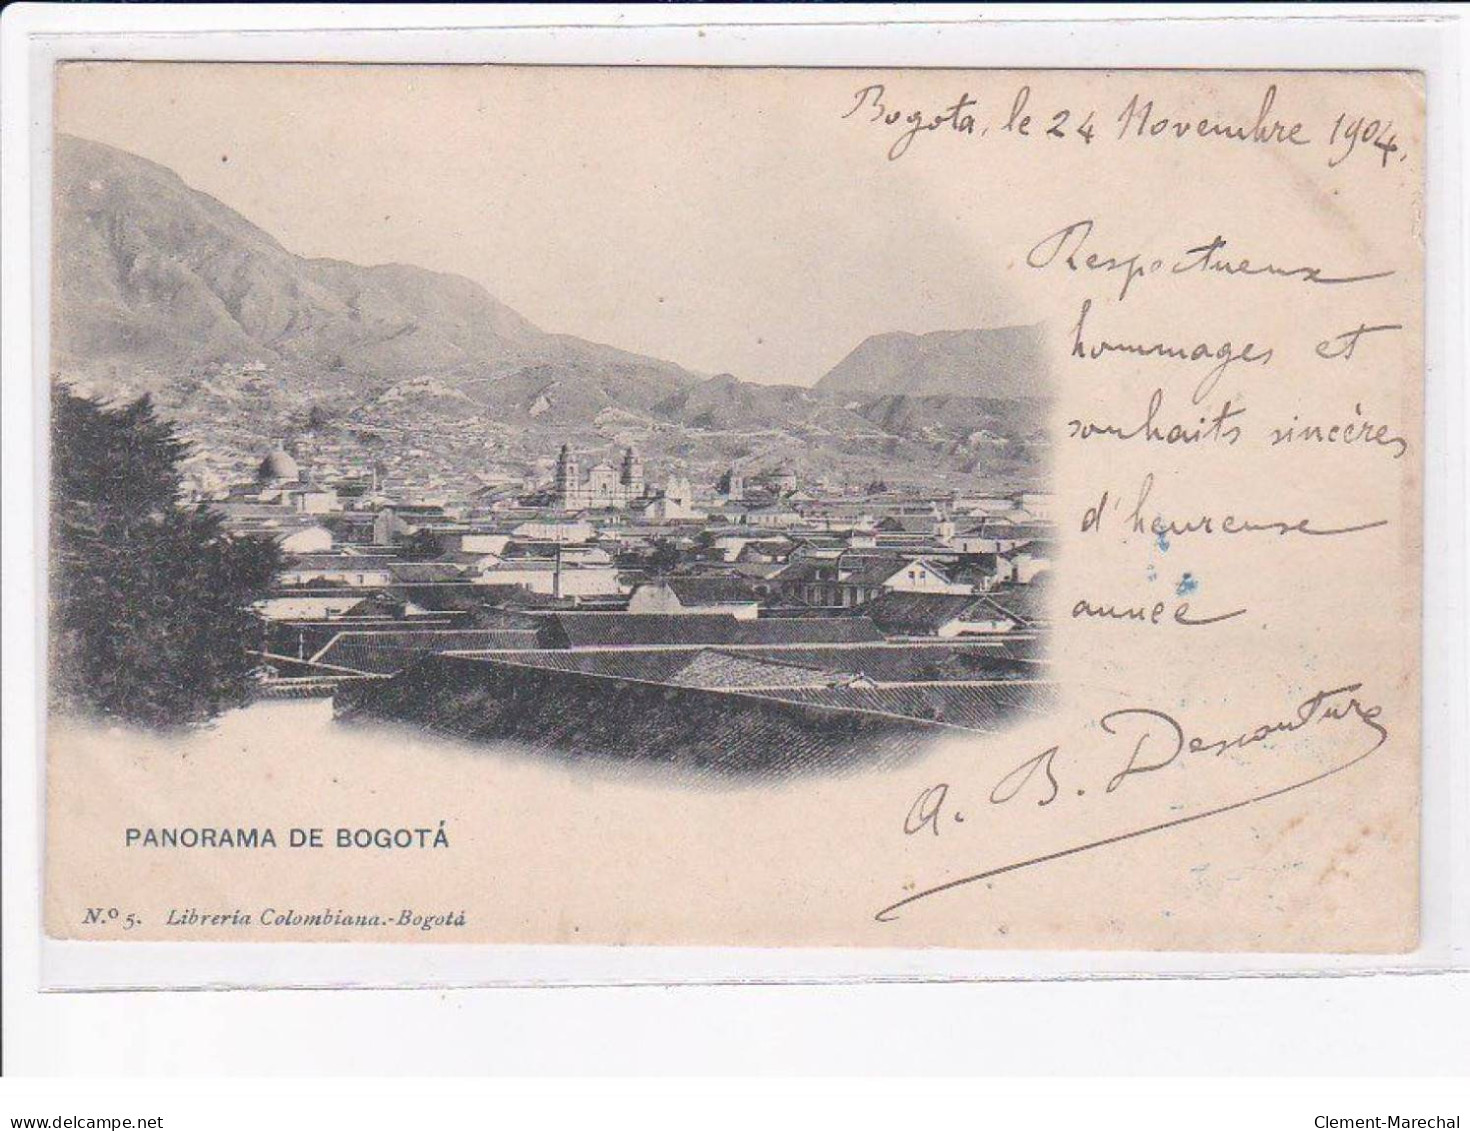 Bogota, le 24 Novembre 1904.
Respectueux
hommages et
souhaits sincères
d'heureuse
année
A. B.
PANORAMA DE BOGOTÁ
N.º 5. Librería Colombiana.-Bogotá
www.delcampe.net
Clement-Marechal